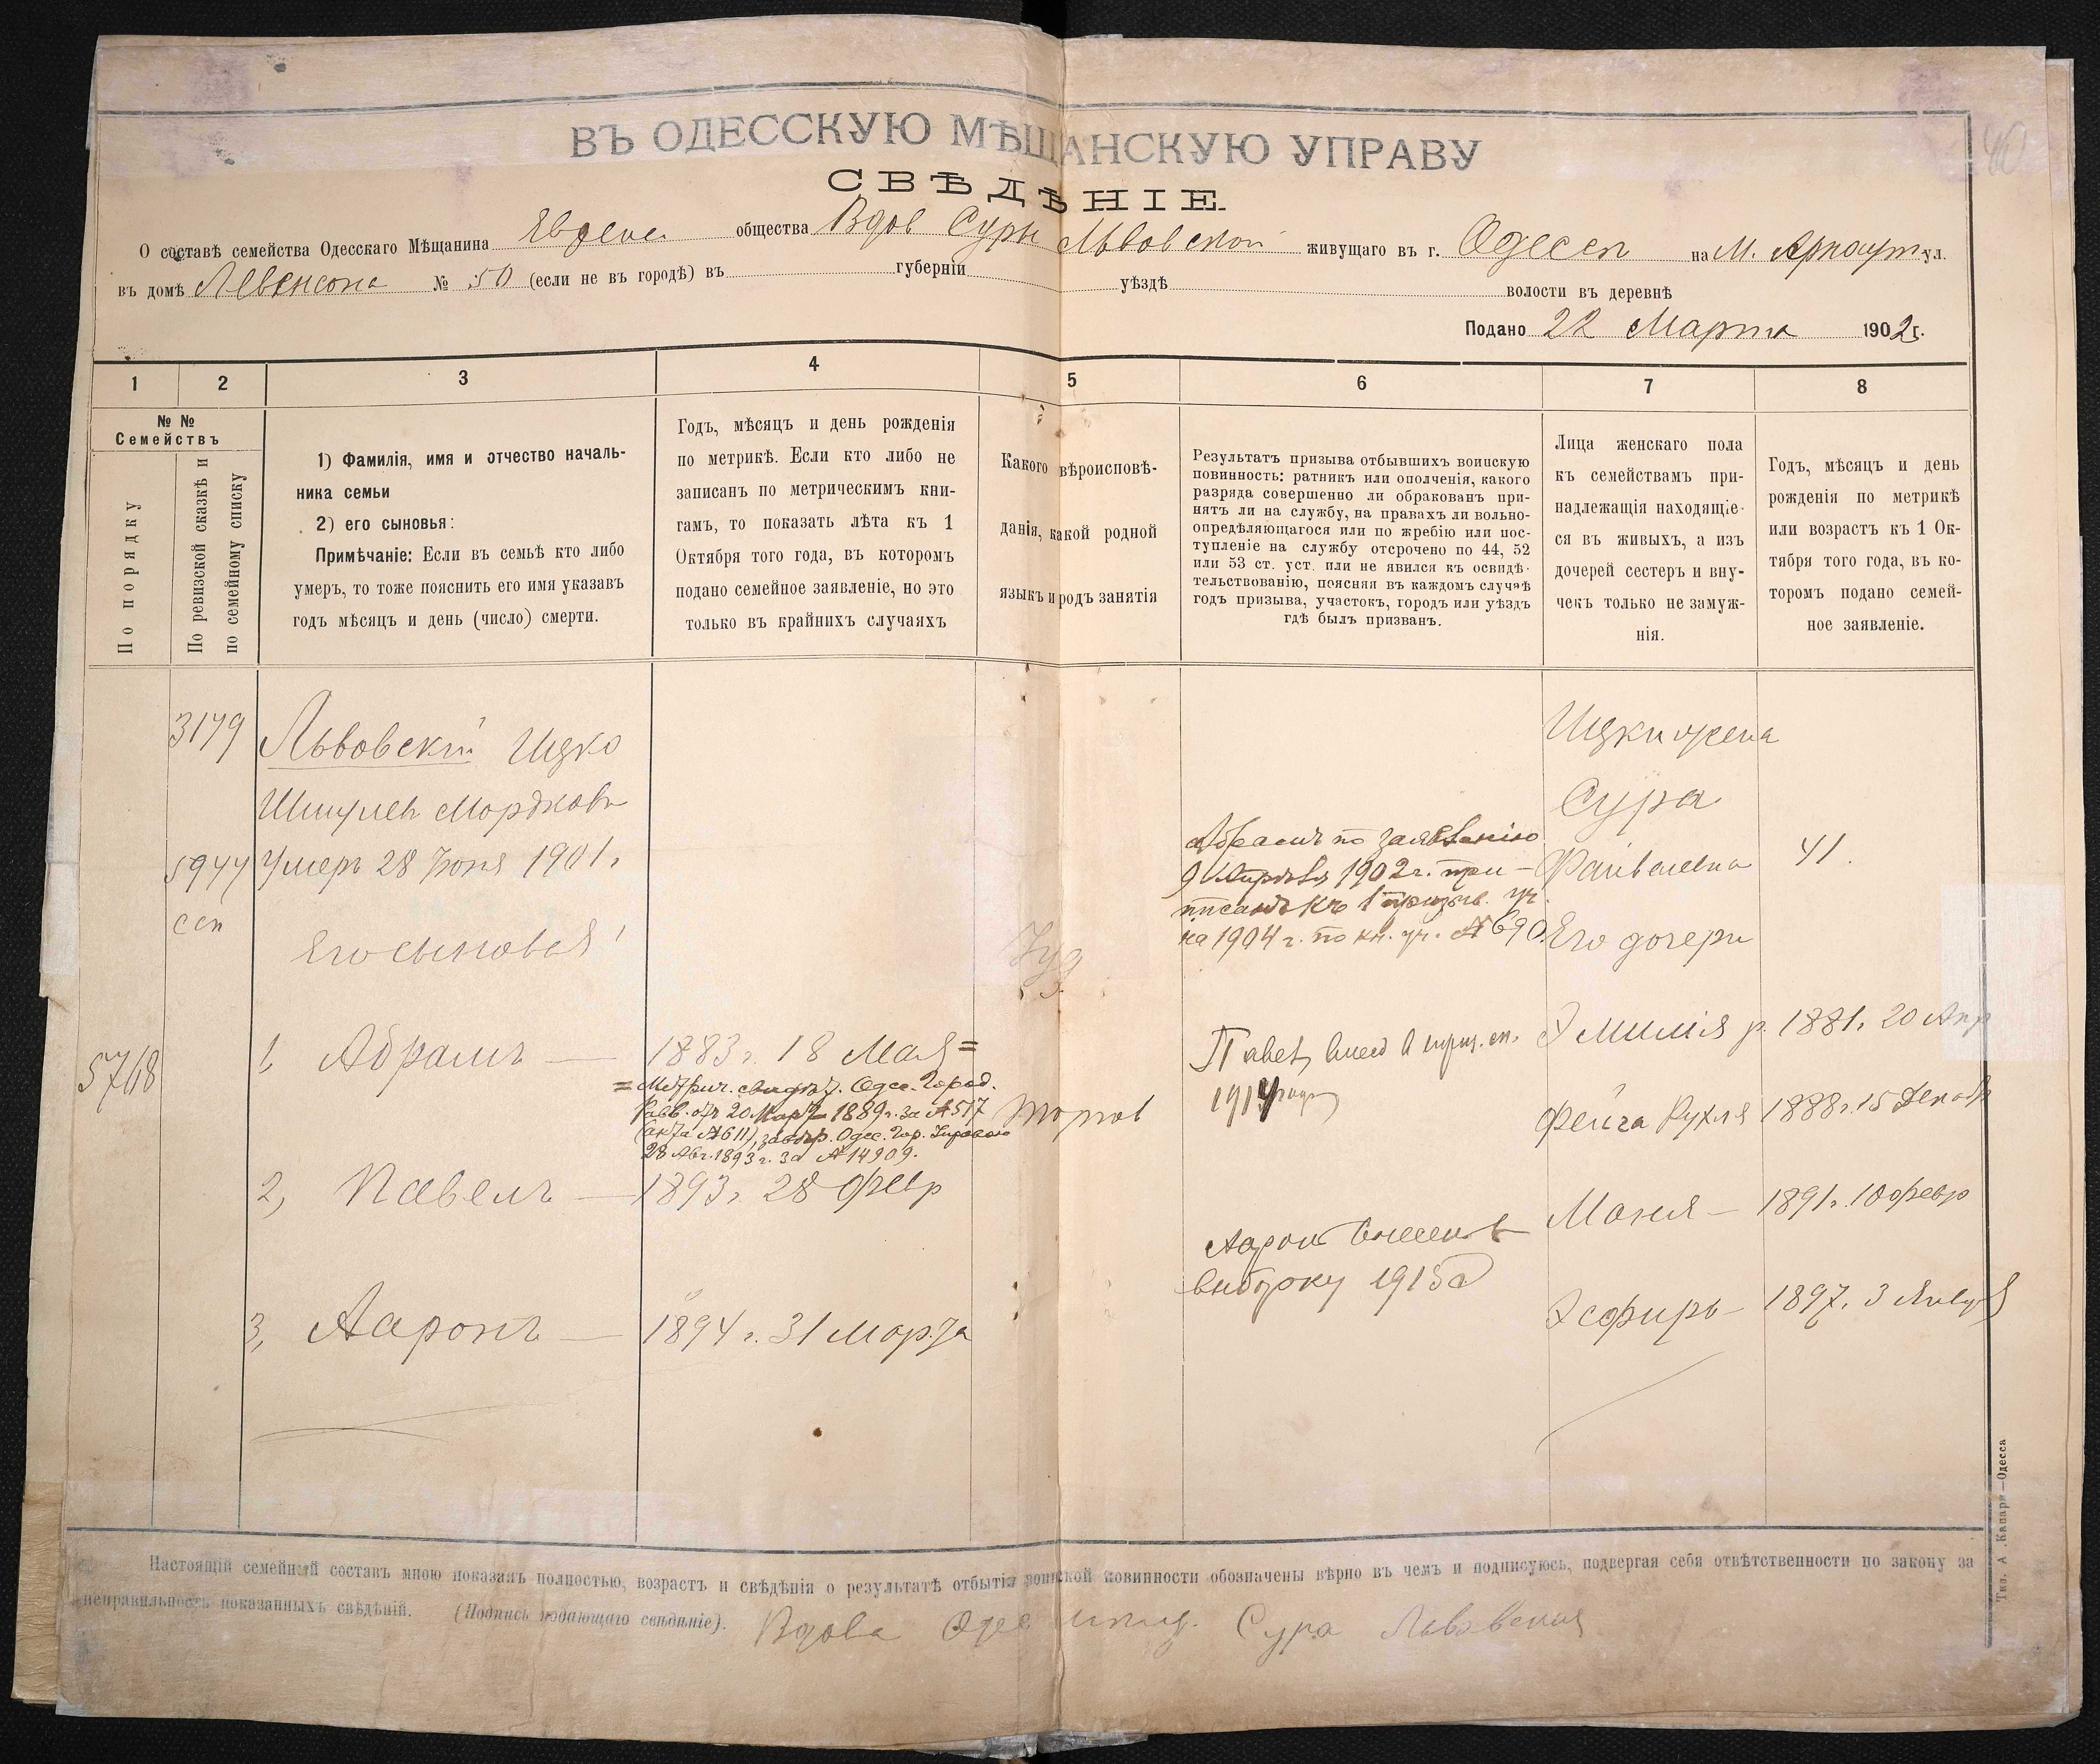 ВЪ ОДЕССКУЮ МѢЩАНСКУЮ УПРАВУ
СВѢДѢНІЕ
О составѣ семейства Одесскаго Мѣщанина общества Вдов Суры Львовской живущаго въ г. Одессѣ на М. Арнаут ул.
въ домѣ Левенсона № 50 (если не въ городѣ) въ губерніи уѣздѣ волости въ деревнѣ
Подано 22 Марта 1902 г.
1 2 3 4 5 6 7 8
№ №
Семействъ
По порядку
По ревизской сказкѣ и
по семейному списку
1) Фамилія, имя и отчество началь-
ника семьи
2) его сыновья:
Примѣчаніе: Если въ семьѣ кто либо
умеръ, то тоже пояснить его имя указавъ
годъ мѣсяцъ и день (число) смерти.
Годъ, мѣсяцъ и день рожденія
по метрикѣ. Если кто либо не
записанъ по метрическимъ кни-
гамъ, то показать лѣта къ 1
Октября того года, въ которомъ
подано семейное заявленіе, но это
только въ крайнихъ случаяхъ
Какого вѣроисповѣ-
данія, какой родной
языкъ и родъ занятія
Результатъ призыва отбывшихъ воинскую
повинность: ратникъ или ополченія, какого
разряда совершенно ли обракованъ при-
нятъ ли на службу, на правахъ ли вольно-
опредѣляющагося или по жребію или пос-
тупленіе на службу отсрочено по 44, 52
или 53 ст. уст. или не явился къ освидѣ-
тельствованію, поясняя въ каждомъ случаѣ
годъ призыва, участокъ, городъ или уѣздъ
гдѣ былъ призванъ.
Лица женскаго пола
къ семействамъ при-
надлежащія находящіе-
ся въ живыхъ, а изъ
дочерей сестеръ и вну-
чекъ только не замуж-
нія.
Годъ, мѣсяцъ и день
рожденія по метрикѣ
или возрастъ къ 1 Ок-
тября того года, въ ко-
торомъ подано семей-
ное заявленіе.
3179
5944
сп
5768
Львовскій Ицко
Шмулев Мордков
Умеръ 28 Іюня 1901 г
Его сыновья:
1, Абрамъ — 1883 г. 18 Мая =
= Метрич. свидѣт. Одес. Город.
Равв. отъ 20 Март 1889 г. за № 517
(акта № 611), завѣр. Одес. Гор. Управою
28 Авг. 1893 г. за № 14909.
2, Павелъ — 1893 г. 28 Февр
3, Ааронъ — 1894 г. 31 Марта
Іуд
торгов
Абрамъ по заявленію
9 Апрѣля 1902 г. при-
писанъ къ 1 призыв. уч.
на 1904 г. по кн. уч. № 690.
Павел внесен в приз. сп.
1914 года
Аарон внесенъ
выборку 1915 г
Ицки жена
Сура
Файвелевна 41.
Его дочери
Эмилія р. 1881 г. 20 Апр
Фейга Рухля 1888 г. 15 Декаб
Маня — 1891 г. 10 Февр
Эсфирь — 1897 г. 3 Января
Настоящій семейный составъ мною показанъ полностью, возрастъ и свѣдѣнія о результатѣ отбытія воинской повинности обозначены вѣрно въ чемъ и подписуюсь, подвергая себя отвѣтственности по закону за
неправильность показанныхъ свѣдѣній. (Подпись подающаго свѣдѣніе). Вдова Одес мѣщ. Сура Львовская
Тип. А. Капари—Одесса
40